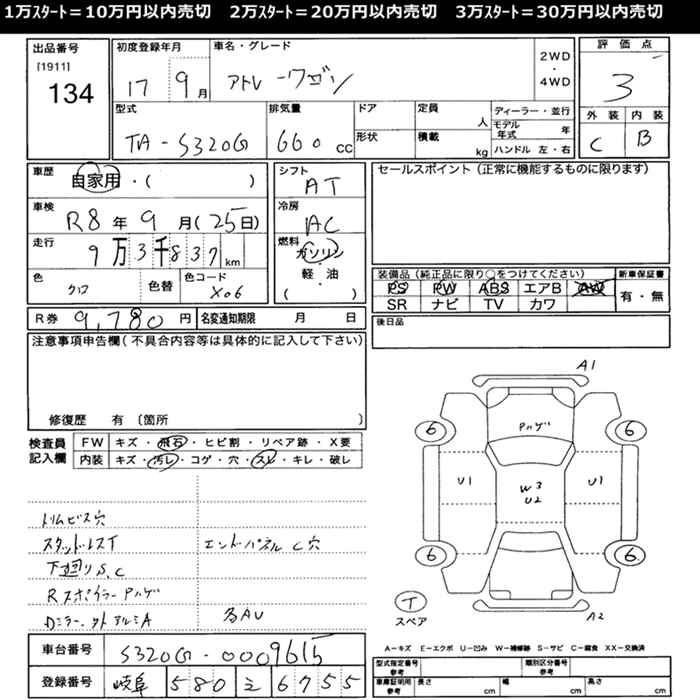 1万ｽﾀｰﾄ＝10万円以内売切　2万ｽﾀｰﾄ＝20万円以内売切　3万ｽﾀｰﾄ＝30万円以内売切
出品番号
[1911]
134
初度登録年月
17 9月
車名・グレード
アトレーワゴン
2WD
・
4WD
評価点
3
外装 内装
C B
型式
TA-S320G
排気量
660 cc
ドア
形状
定員
人
積載
kg
ディーラー・並行
モデル年式 年
ハンドル 左・右
車歴
自家用・( )
車検
R8年9月(25日)
走行
9万3千837km
色
クロ
色替
色コード
X06
シフト
AT
冷房
AC
燃料
ガソリン
軽・油
( )
セールスポイント（正常に機能するものに限ります）
装備品（純正品に限り○をつけてください）
PS PW ABS エアB AW
SR ナビ TV カワ
新車保証書
有・無
R券 9,780円
名変通知期限 月 日
後日品
注意事項申告欄（不具合内容等は具体的に記入して下さい）
修復歴 有〔箇所 〕
検査員記入欄
FW キズ・飛石・ヒビ割・リペア跡・X要
内装 キズ・汚レ・コゲ・穴・スレ・キレ・破レ
トリムビス穴
スタッドレスT
エンドパネルC穴
下廻りS,C
Rスポイラーアハゲ
Dミラー外アルミA
名AV
A1
Pハゲ
6 6
U1
W3
U2
U1
6 6
T
スペア
A2
A－キズ E－エクボ U－凹み W－補修跡 S－サビ C－腐食 XX－交換済
車台番号 S320G-0009615
登録番号 岐阜 580 え 6755
型式指定番号
参考
類別区分番号
参考
車庫証明用
参考
長さ cm
幅 cm
高さ cm